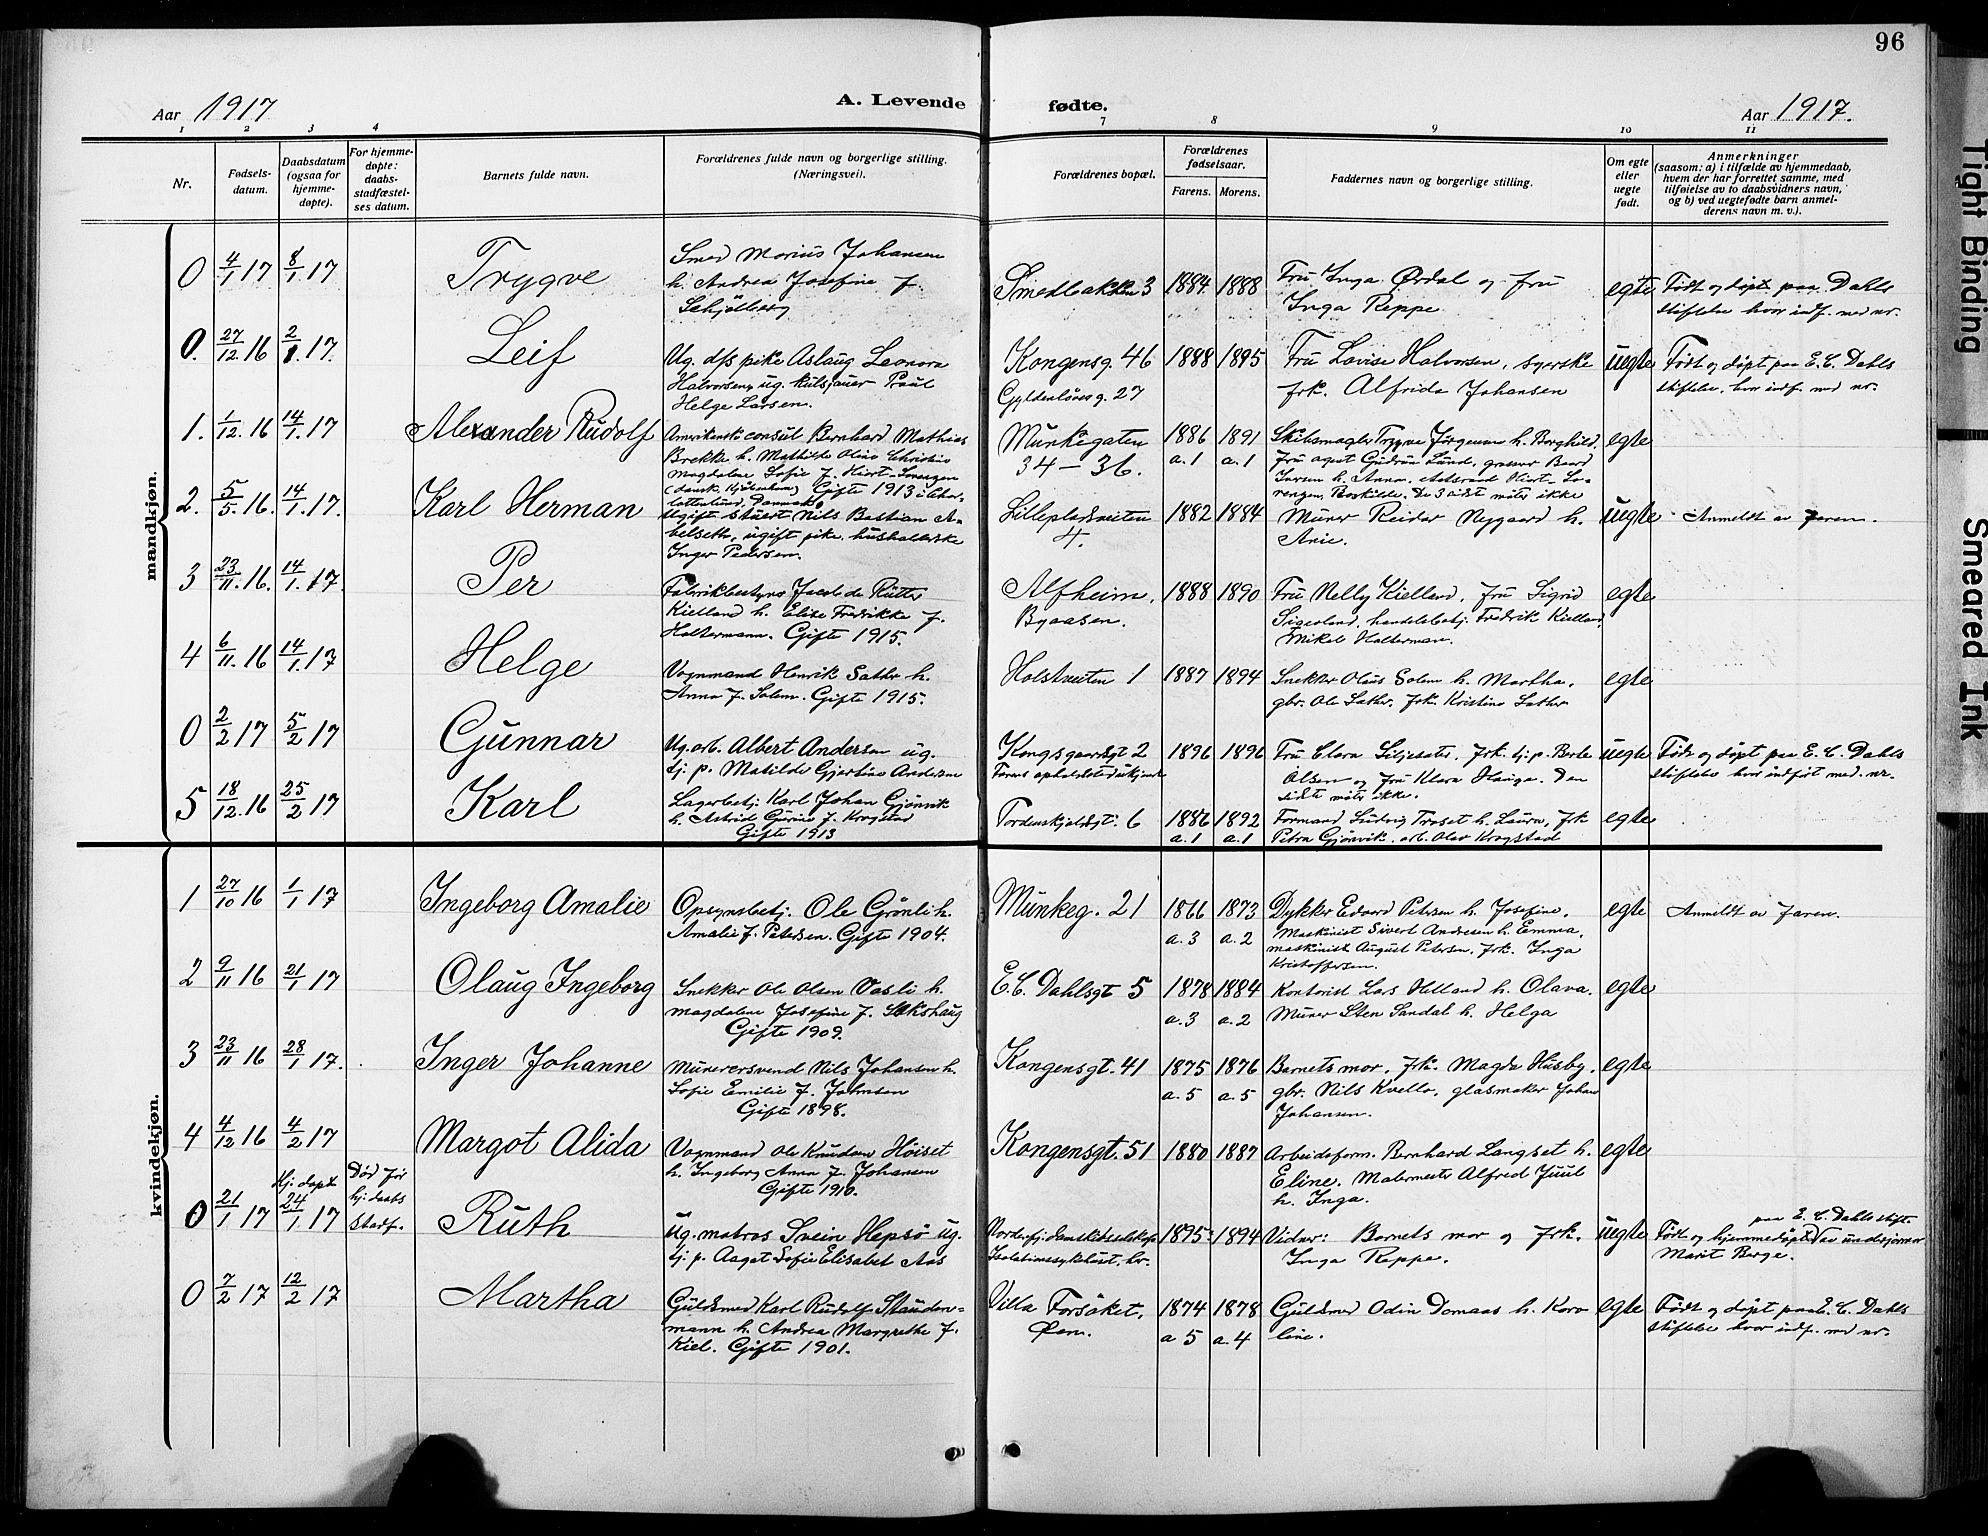 96
Aar 1917
A. Levende fødte.
Aar 1917.
1 2 3 4 7 8 9 10 11
Nr.
Fødsels-
datum.
Daabsdatum
(ogsaa for
hjemme-
døpte).
For hjemme-
døpte:
daabs-
stadfæstel-
ses datum.
Barnets fulde navn.
Forældrenes fulde navn og borgerlige stilling.
(Næringsvei).
Forældrenes bopæl.
Forældrenes
fødselsaar.
Farens. Morens.
Faddernes navn og borgerlige stilling.
Om egte
eller
uegte
født.
Anmerkninger
(saasom: a) i tilfælde av hjemmedaab,
hvem der har forrettet samme, med
tilføielse av to daabsvidners navn,
og b) ved uegtefødte barn anmel-
derens navn m. v.).
mandkjøn.
0 4/1 17 8/1 17 Trygve
Smed Marius Johansen
h. Andrea Josefine f.
Schjölberg
Smedbakken 3 1884 1888
Fru Inga Ørdal og fru
Inga Reppe
egte
Født og døpt paa Dahls
stiftelse hvor indf. med nr.
0. 27/12 16 2/1 17 Leif
Ug. dfs pike Aslaug Leonora
Halvorsen, ug. kulsjauer Paul
Helge Larsen.
Kongensg. 46
Gyldenløvesg. 27
1888 1895
Fru Lovise Halvorsen, syerske
frk. Alfrida Johansen
uegte
Født og døpt paa E. C. Dahls
stiftelse, hvor indf. med nr.
1. 1/12 16 14/1 17 Alexander Rudolf
Amerikansk consul Bernhard Mathias
Brekke h. Mathilde Oline Christine
Magdalene Sofie f. Hiort-
(dansk, Kjøbenhavn) Gifte 1913 i Char-
lottenlund, Danmark.
Munkegaten
34-36.
1886 1891
a. 1 a. 1
Skibsmægler Trygve Jørgensen h. Borghild
fru agent Gudrun Lund, grosserer
h. Anna. Hiort-Lo-
rengen, Roskilde. De 3 sidste møter ikke
egte
2. 5/5 16. 14/1 17. Karl Herman
Ugift stuert Nils Bastian A-
belseth, ugift pike, husholderske
Inger Pedersen.
4.
1882 1884
Murer Reidar Nygaard h.
Anie.
uegte
Anmeldt av faren.
3 23/11 16. 14/1 17. Per
Fabrikbestyrer Jacob de Rytter
Kielland h. Elise Fredrikke f.
Holtermann. Gifte 1915.
Alfheim,
Byaasen.
1888 1890
Fru Nelly Kielland, fru Sigrid
handelsbetj. Fredrik Kielland,
Mikal Holterman.
egte
4 6/11 16 14/1 17 Helge
Vognmand Henrik Sæther h.
Anna f. Solem. Gifte 1915.
Holstveiten 1 1887 1894
Snekker Olaus Solem h. Martha,
gbr. Ole Sæther, frk. Kristine Sæther
egte
0 2/2 17 5/2 17 Gunnar
Ug. arb. Albert Andersen ug.
tj. p. Matilde Gjertine Andersen
Kongsgaardsgt 2
Farens opholdssted ukjendt
1896 1896
Fru Clara Liljesæter, frk. tj. p. Berte
Olsen og fru Klara Hauge. Den
sidste møter ikke.
uegte
Født og døpt paa E. C. Dahls
stiftelse hvor indført med nr.
5 18/12 16 25/2 17 Karl
Lagerbetj. Karl Johan Gjönvik
h. Astrid Gurine f. Krogstad
Gifte 1913
Tordenskjoldsgt. 6 1886 1892
a. 1 a. 1
Formand Ludvig Troset h. Laura, frk
Petra Gjönvik, arb. Olav Krogstad
egte
kvindekjøn.
1 27/10 16 1/1 17 Ingeborg Amalie
Opsynsbetj. Ole Grönli h.
Amalie f. Petersen. Gifte 1904.
Munkeg. 21 1866 1873
a. 3 a. 2
Dykker Edvard Petersen h. Josefine,
Maskinist Sivert Andresen h. Emma,
maskinist August Petersen, frk. Inga
Kristoffersen.
egte
Anmeldt av faren.
2 9/11 16 21/1 17 Olaug Ingeborg
Snekker Ole Olsen Vasli h.
Magdalene Josefine f. Stokshaug
Gifte 1909.
E. C. Dahlsgt 5 1878 1884
a. 3 a. 2
Kontorist Lars Helland h. Olava.
Murer Sten Sandal h. Helga
egte
3 23/11 16 28/1 17. Inger Johanne
Murersvend Nils Johansen h.
Sofie Emilie f. Johnsen
Gifte 1898.
Kongensgt. 41 1875 1876
a. 5 a. 5
Barnets mor, frk. Magda Husby,
gbr. Nils Kvello, glasmaker Johan
Johansen.
egte
4 4/12 16 4/2 17 Margot Alida
Vognmand Ole Knudsen Höiset
h. Ingeborg Anna f. Johansen
Gifte 1910.
Kongensgt. 51 1880 1887
Arbeidsform. Bernhard Langset h.
Eline. Malermester Alfred Juul
h. Inga.
egte
0 21/1 17 Hj. døpt 24/1 17
Død før
hj. daabs
stadf.
Ruth
Ug. matros Svein Hepsö ug.
tj. p. Aagot Sofie Elisabet Aas
Nordenfj. damskibsselskap
Isolationssykehuset, hr.
1895 1894
Vidner: Barnets mor og frk.
Inga Reppe.
uegte
paa E. C. Dahls stift.
Født og hjemmedøpt av undersjormor
Marit Berge.
0 7/2 17 12/2 17 Martha
Guldsmed Karl Rudolf Stauden-
mann h. Andrea Margrethe f.
Kiel. Gifte 1901.
Villa Forsøket,
Øen.
1874 1878
a 5 a. 4
Guldsmed Odin Domaas h. Karo
line.
egte
Født og døpt paa E. C. Dahls
stiftelse hvor indf. med nr.
Tight Binding
Smeared Ink